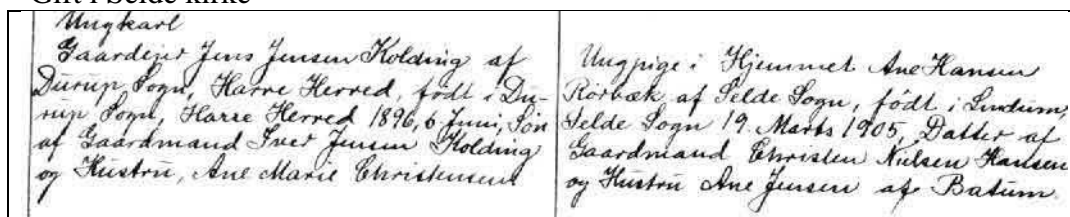 Gift i Selde kirke
Ungkarl
Gaardejer Jens Jensen Kolding af
Durup Sogn, Harre Herred, født i Du-
rup Sogn, Harre Herred 1896, 6 Juni, Søn
af Gaardmand Iver Jensen Kolding
og Hustru, Ane Marie Christensen
Ungpige i Hjemmet Ane Hansen
Rørbæk af Selde Sogn, født i Lindum,
Selde Sogn 19. Marts 1905, Datter af
Gaardmand Christen Nielsen Hansen
og Hustru Ane Jensen af Batum.